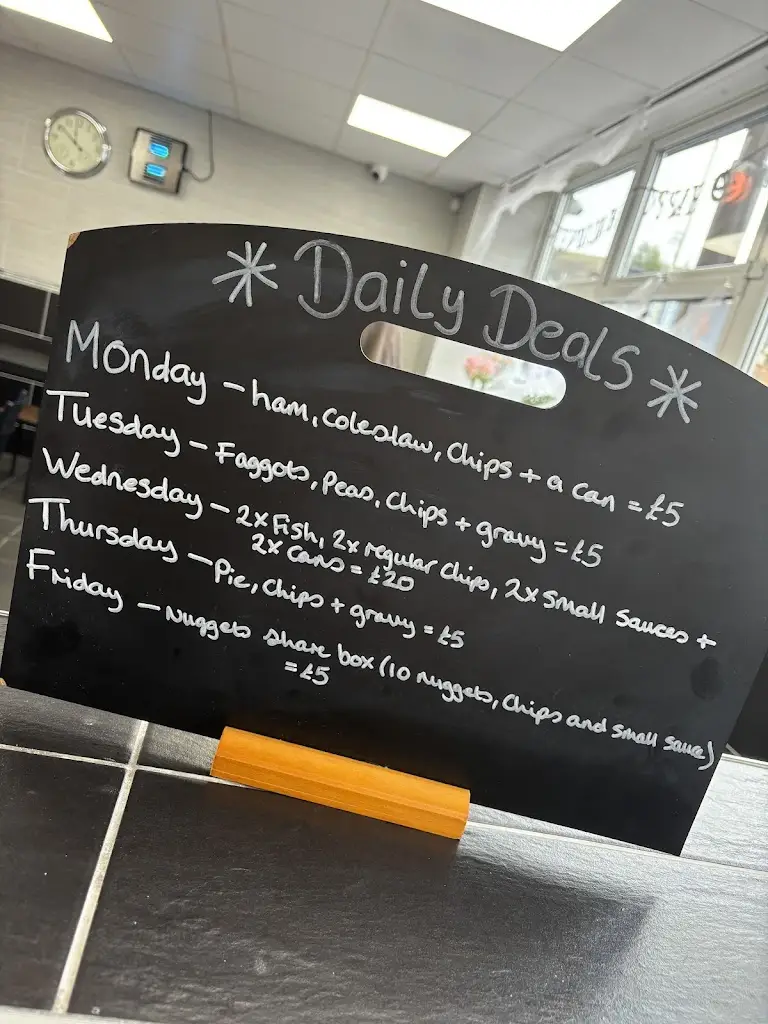 * Daily Deals *
Monday - ham, coleslaw, chips + a can = £5
Tuesday - Faggots, Peas, chips + gravy = £5
Wednesday - 2x Fish, 2x regular chips, 2x small sauces +
2x cans = £20
Thursday - Pie, chips + gravy = £5
Friday - Nuggets share box (10 nuggets, chips and small sauce)
= £5